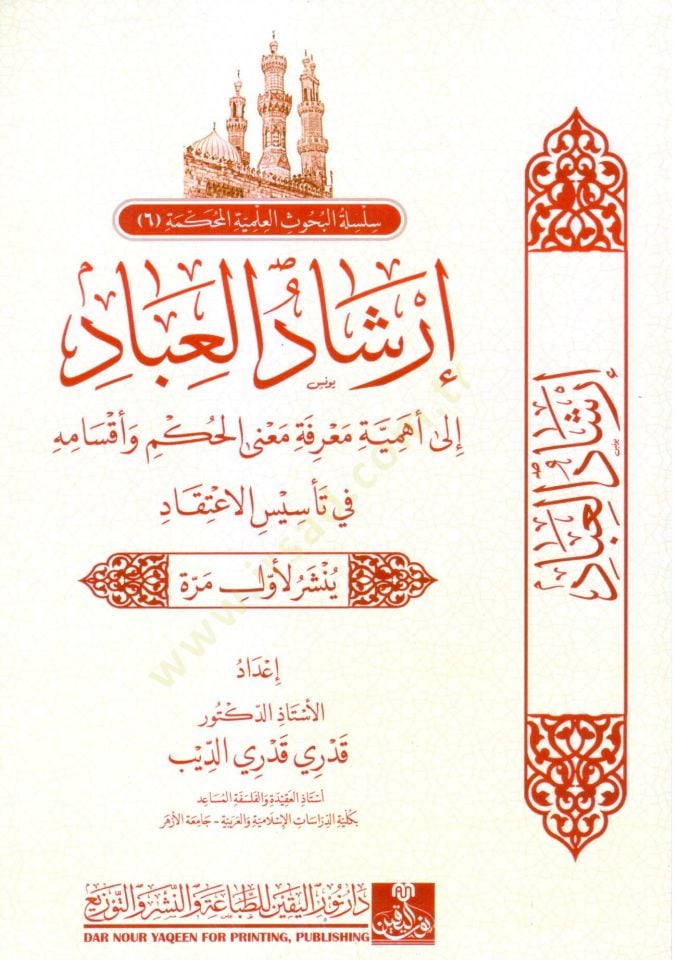 سِلْسِلَةُ البُحُوثِ العِلْمِيَّةِ المُحَكَّمَةِ (٦)
إِرْشَادُ العِبَادِ
يونس
إِلَى أَهَمِيَّةِ مَعْرِفَةِ مَعْنَى الحُكْمِ وَأَقْسَامِهِ
فِي تَأْسِيسِ الِاعْتِقَادِ
يُنْشَرُ لأَوَّلِ مَرَّة
إِعْدَادُ
الأُسْتَاذِ الدّكْتُور
قَدْرِي قَدْرِي الدِّيب
أُسْتَاذِ العَقِيْدَةِ وَالفَلْسَفَةِ المُسَاعِد
بِكُلِّيَةِ الدِّرَاسَاتِ الإِسْلَامِيَّةِ وَالعَرَبِيَّةِ - جَامِعَة الأَزْهَر
دار نور اليقين للطباعة والنشر والتوزيع
DAR NOUR YAQEEN FOR PRINTING, PUBLISHING
نور اليقين
إِرْشَادُ العِبَادِ
يونس
www.irsad.com.tr